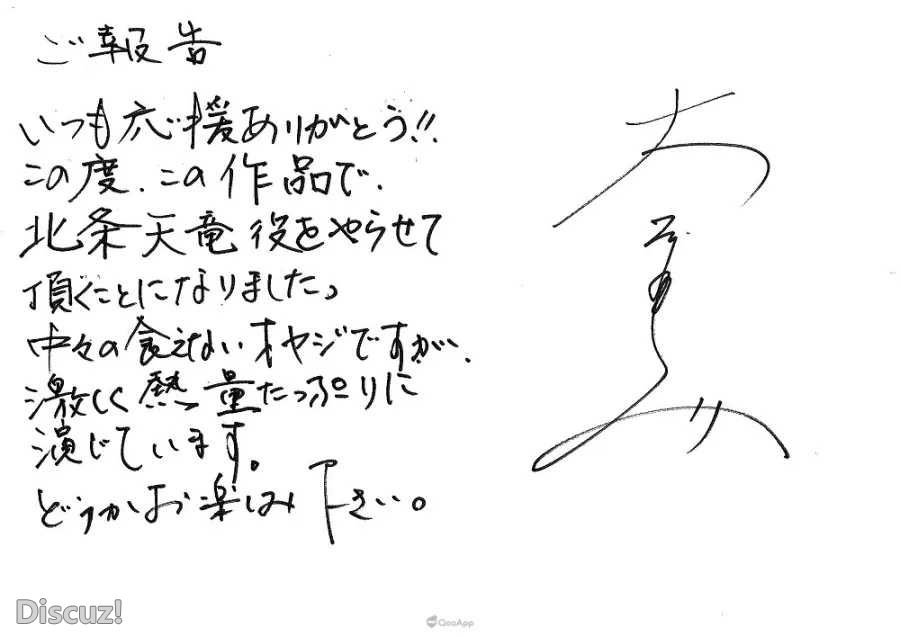 ご報告
いつも応援ありがとう!!
この度、この作品で、
北条天竜役をやらせて
頂くことになりました。
中々の食えないオヤジですが、
激しく熱量たっぷりに
演じています。
どうかお楽しみ下さい。
Discuz!
QooApp